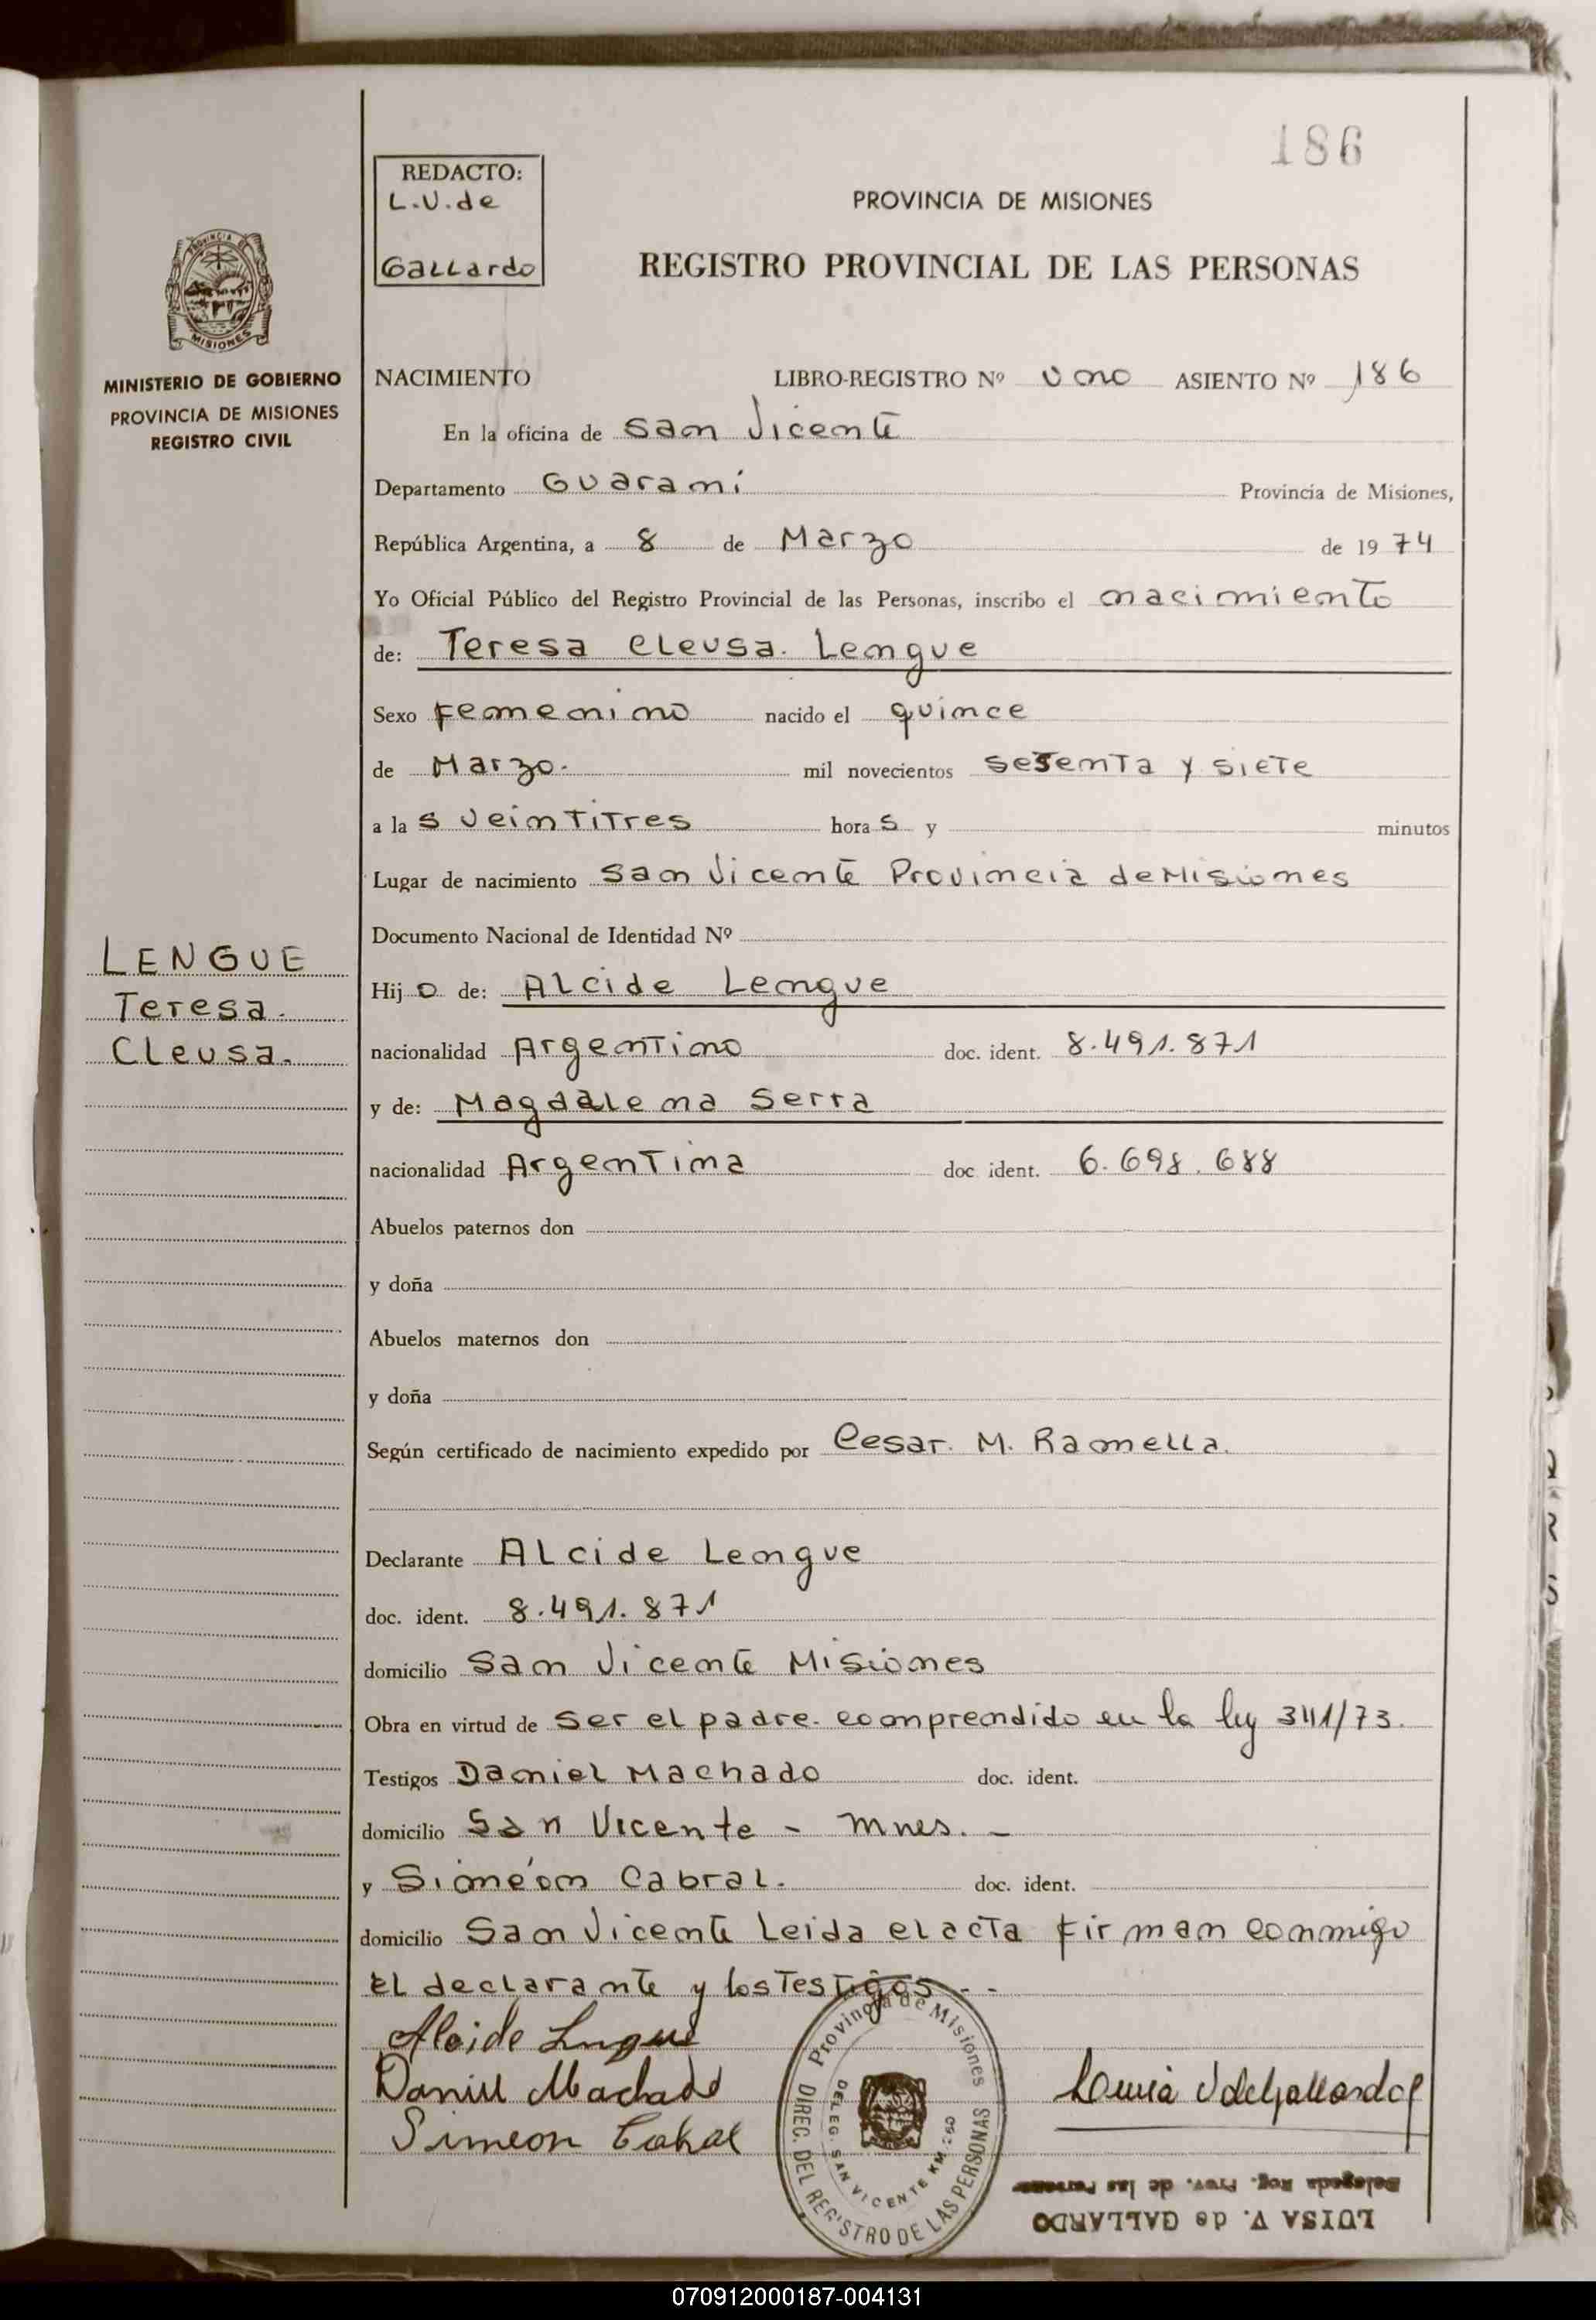 186
REDACTO:
L.V.de
Gallardo
PROVINCIA DE MISIONES
REGISTRO PROVINCIAL DE LAS PERSONAS
MINISTERIO DE GOBIERNO
PROVINCIA DE MISIONES
REGISTRO CIVIL
NACIMIENTO LIBRO-REGISTRO Nº uno ASIENTO Nº 186
En la oficina de San Vicente
Departamento Guaraní Provincia de Misiones,
República Argentina, a 8 de Marzo de 1974
Yo Oficial Público del Registro Provincial de las Personas, inscribo el nacimiento
de: Teresa Cleusa. Lengue
Sexo Femenino nacido el quince
de Marzo. mil novecientos sesenta y siete
a las veintitres horas y minutos
Lugar de nacimiento San Vicente Provincia de Misiones
Documento Nacional de Identidad Nº
LENGUE
Teresa.
Cleusa.
Hijo de: Alcide Lengue
nacionalidad Argentino doc. ident. 8.491.871
y de: Magdalena Serra
nacionalidad Argentina doc. ident. 6.698.688
Abuelos paternos don
y doña
Abuelos maternos don
y doña
Según certificado de nacimiento expedido por Cesar. M. Ramella.
Declarante Alcide Lengue
doc. ident. 8.491.871
domicilio San Vicente Misiones
Obra en virtud de ser el padre. comprendido en la ley
Testigos Daniel Machado doc. ident.
domicilio San Vicente - Mnes. -
y Simeón Cabral. doc. ident.
domicilio San Vicente Leida el acta firman conmigo
El declarante y los Testigos - -
Alcide Lengue
Daniel Machado
Simeon Cabral
Provincia de Misiones
DIREC. DEL REGISTRO DE LAS PERSONAS
DELEG. SAN VICENTE KM. 260
Delegada Reg. Prov. de las Personas
LUISA V. de GALLARDO
070912000187-004131